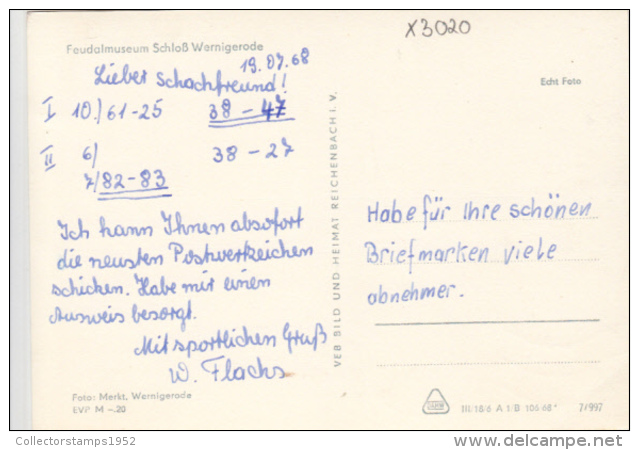 X3020
Feudalmuseum Schloß Wernigerode
19.07.68
Lieber Schachfreund!
I 10./61-25 38 - 47
II 6/ 38 - 27
7/82-83
Ich kann Ihnen absofort
die neusten Postwertzeichen
schicken. Habe mir einen
Ausweis besorgt.
Mit sportlichen Gruß
W. Flachs
Foto: Merkt, Wernigerode
EVP M -.20
VEB BILD UND HEIMAT REICHENBACH i. V.
Echt Foto
Habe für Ihre schönen
Briefmarken viele
abnehmer.
III/18/6 A 1/B 106/68* 7/997
Collectorstamps1952
delcampe.net